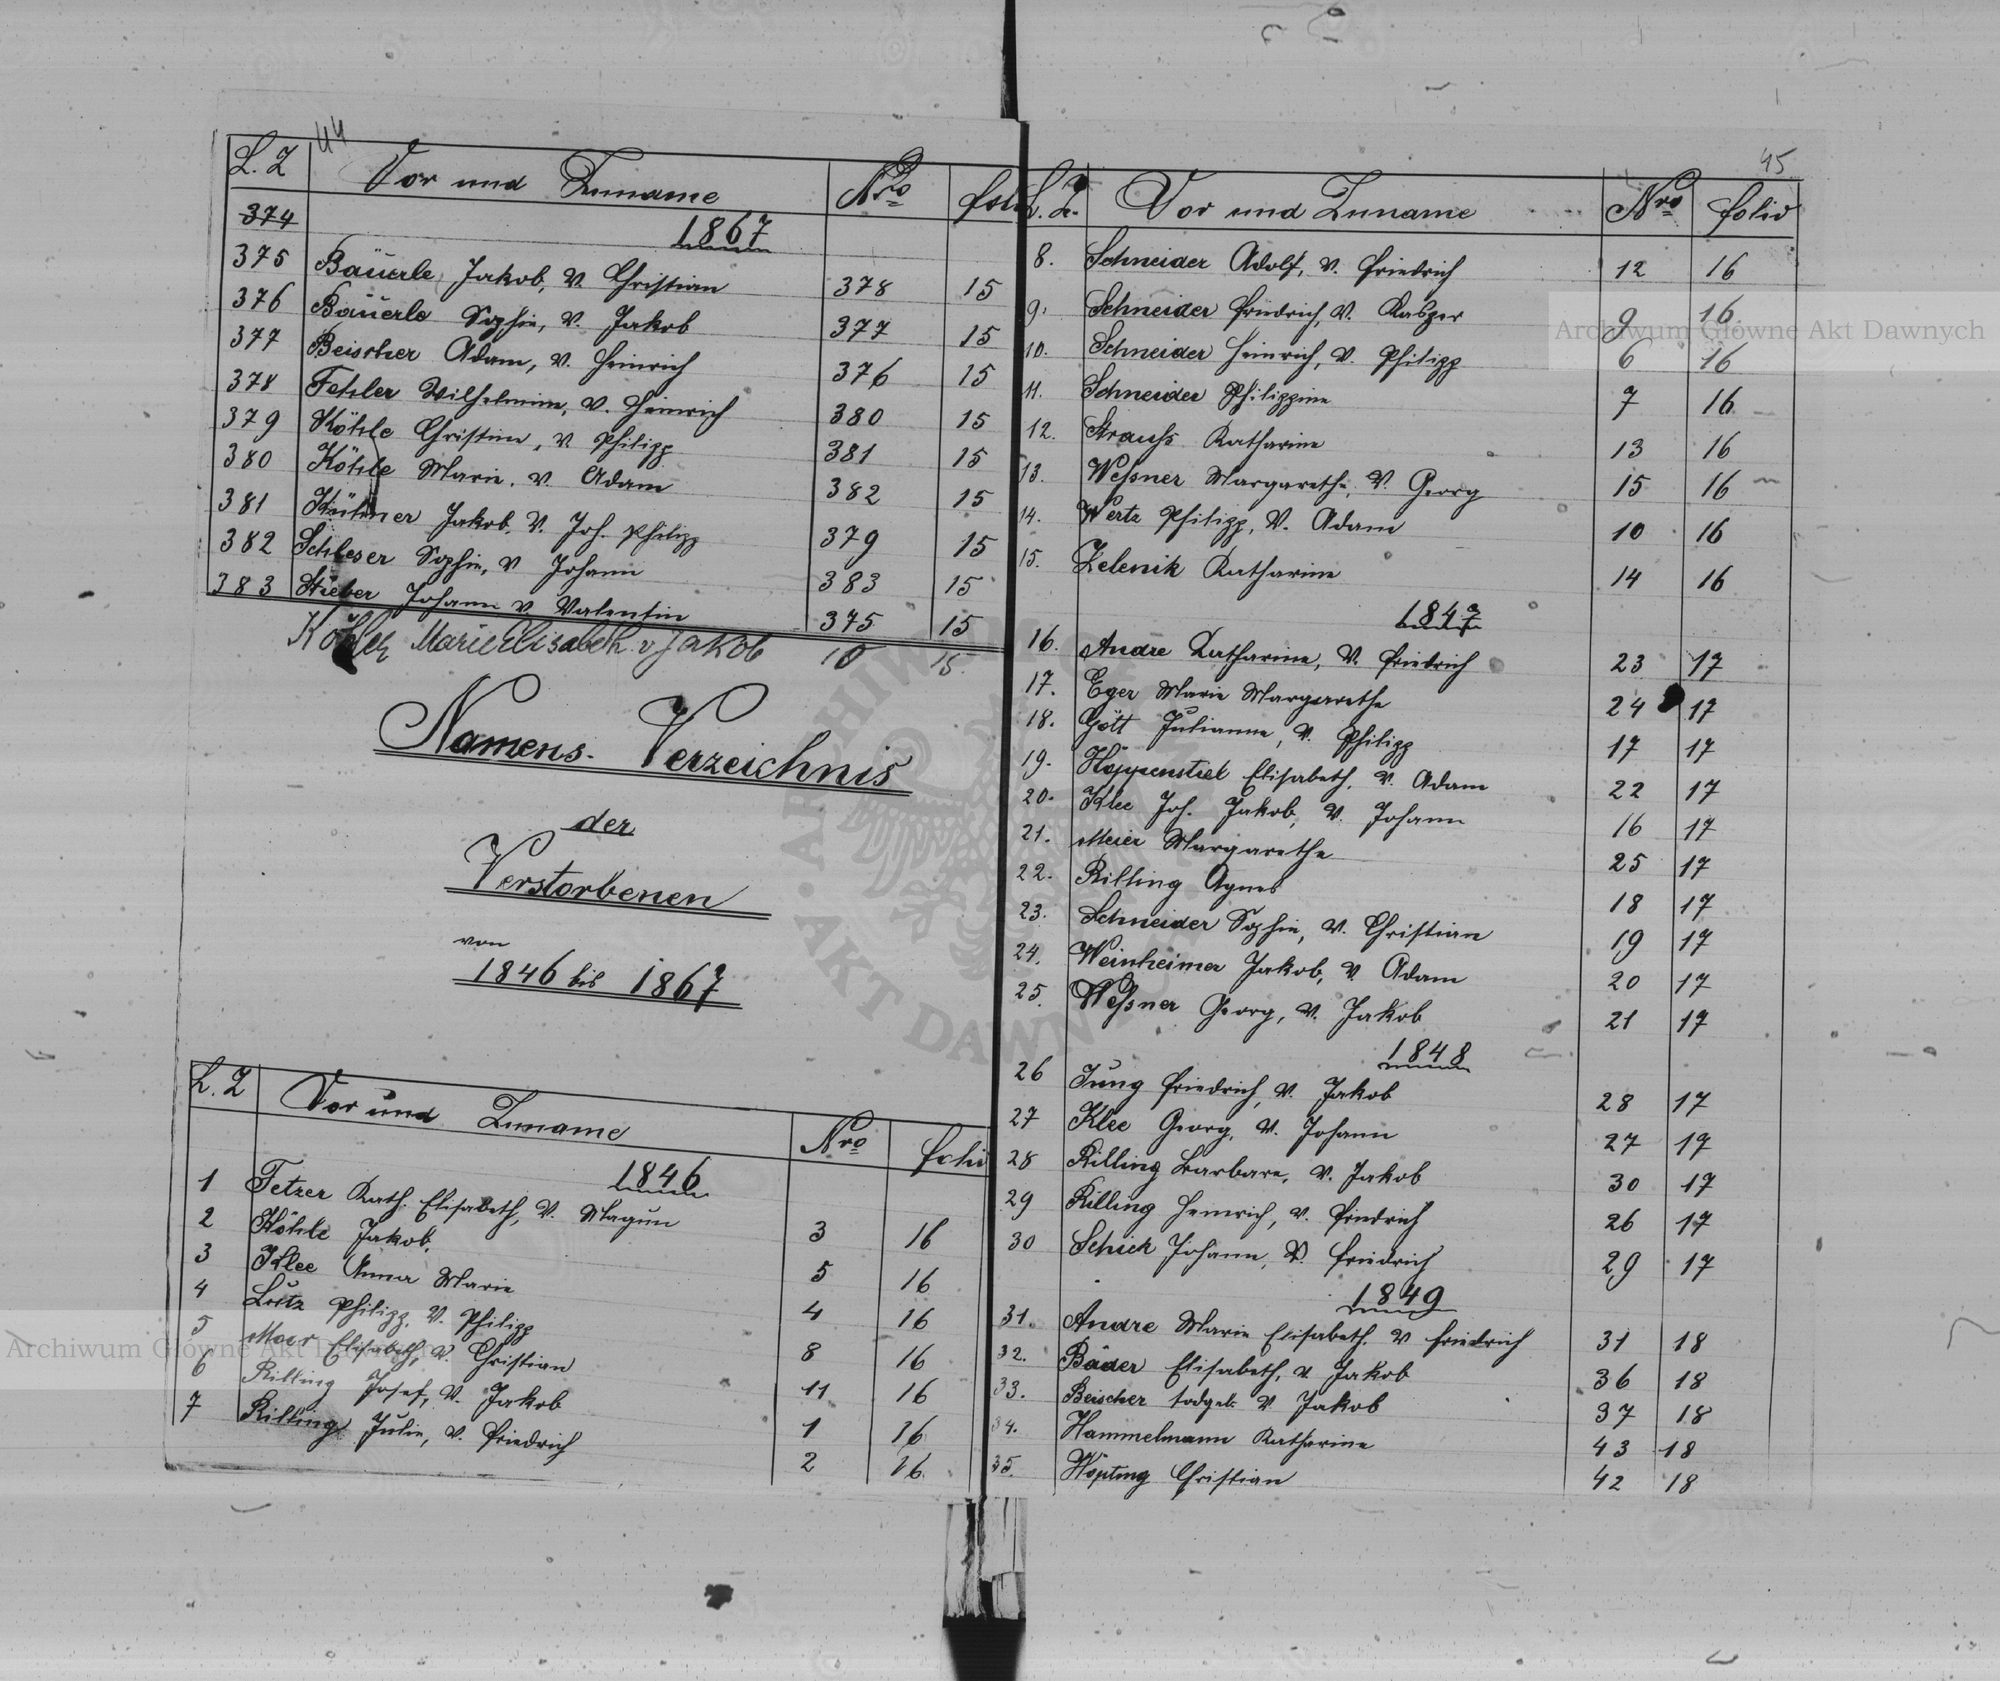 44
L. Z Vor und Zuname Nro folio
374
1867
375 Bäuerle Jakob, v. Christian 378 15
376 Bäuerle Sophie, v. Jakob 377 15
377 Beischer Adam, v. Heinrich 376 15
378 Fehler Wilhelmine, v. Heinrich 380 15
379 Köhle Christine, v. Philipp 381 15
380 Köhle Marie, v. Adam 382 15
381 Kühner Jakob, v. Joh. Philipp 379 15
382 Schleser Sophie, v Johann 383 15
383 Stieber Johann v. Valentin 375 15
Köhler Marie Elisabeth v Jakob 10 15
Namens-Verzeichnis
der
Verstorbenen
von
1846 bis 1867
L. Z Vor und Zuname Nro folio
1846
1 Fetzer Kath. Elisabeth, v. Magnus 3 16
2 Köhle Jakob, 5 16
3 Klee Anna Marie 4 16
4 Lutz Philipp, v. Philipp 8 16
5 Maer Elisabeth, v. Christian 11 16
6 Rilling Josef, v. Jakob 1 16
7 Rilling Julie, v. Friedrich 2 16
45
L. Z. Vor und Zuname Nro folio
8. Schneider Adolf, v. Friedrich 12 16
9. Schneider Friedrich, v. Kasper 9 16
10. Schneider Heinrich, v. Philipp 6 16
11. Schneider Philippine 7 16
12. Strauss Katharine 13 16
13. Weßner Margarethe, v. Georg 15 16
14. Wertz Philipp, v. Adam 10 16
15. Zelenik Katharine 14 16
1847
16. Andre Katharine, v. Friedrich 23 17
17. Eger Marie Margarethe 24 17
18. Gött Julianne, v. Philipp 17 17
19. Höppenstiel Elisabeth, v. Adam 22 17
20. Klee Joh. Jakob, v. Johann 16 17
21. Meier Margarethe 25 17
22. Rilling Agnes 18 17
23. Schneider Sophie, v. Christian 19 17
24. Weinheimer Jakob, v Adam 20 17
25. Weßner Georg, v. Jakob 21 17
1848
26 Jung Friedrich, v. Jakob 28 17
27 Klee Georg, v. Johann 27 17
28 Rilling Barbara, v. Jakob 30 17
29 Rilling Heinrich, v. Friedrich 26 17
30 Schick Johann, v. Friedrich 29 17
1849
31. Andre Marie Elisabeth, v Friedrich 31 18
32. Bader Elisabeth, v. Jakob 36 18
33. Beischer todgeb. v Jakob 37 18
34. Hammelmann Katharine 43 18
35. Höpting Christian 42 18
Archiwum Główne Akt Dawnych
Archiwum Główne Akt Dawnych
ARCHIWUM
AKT DAWNYCH